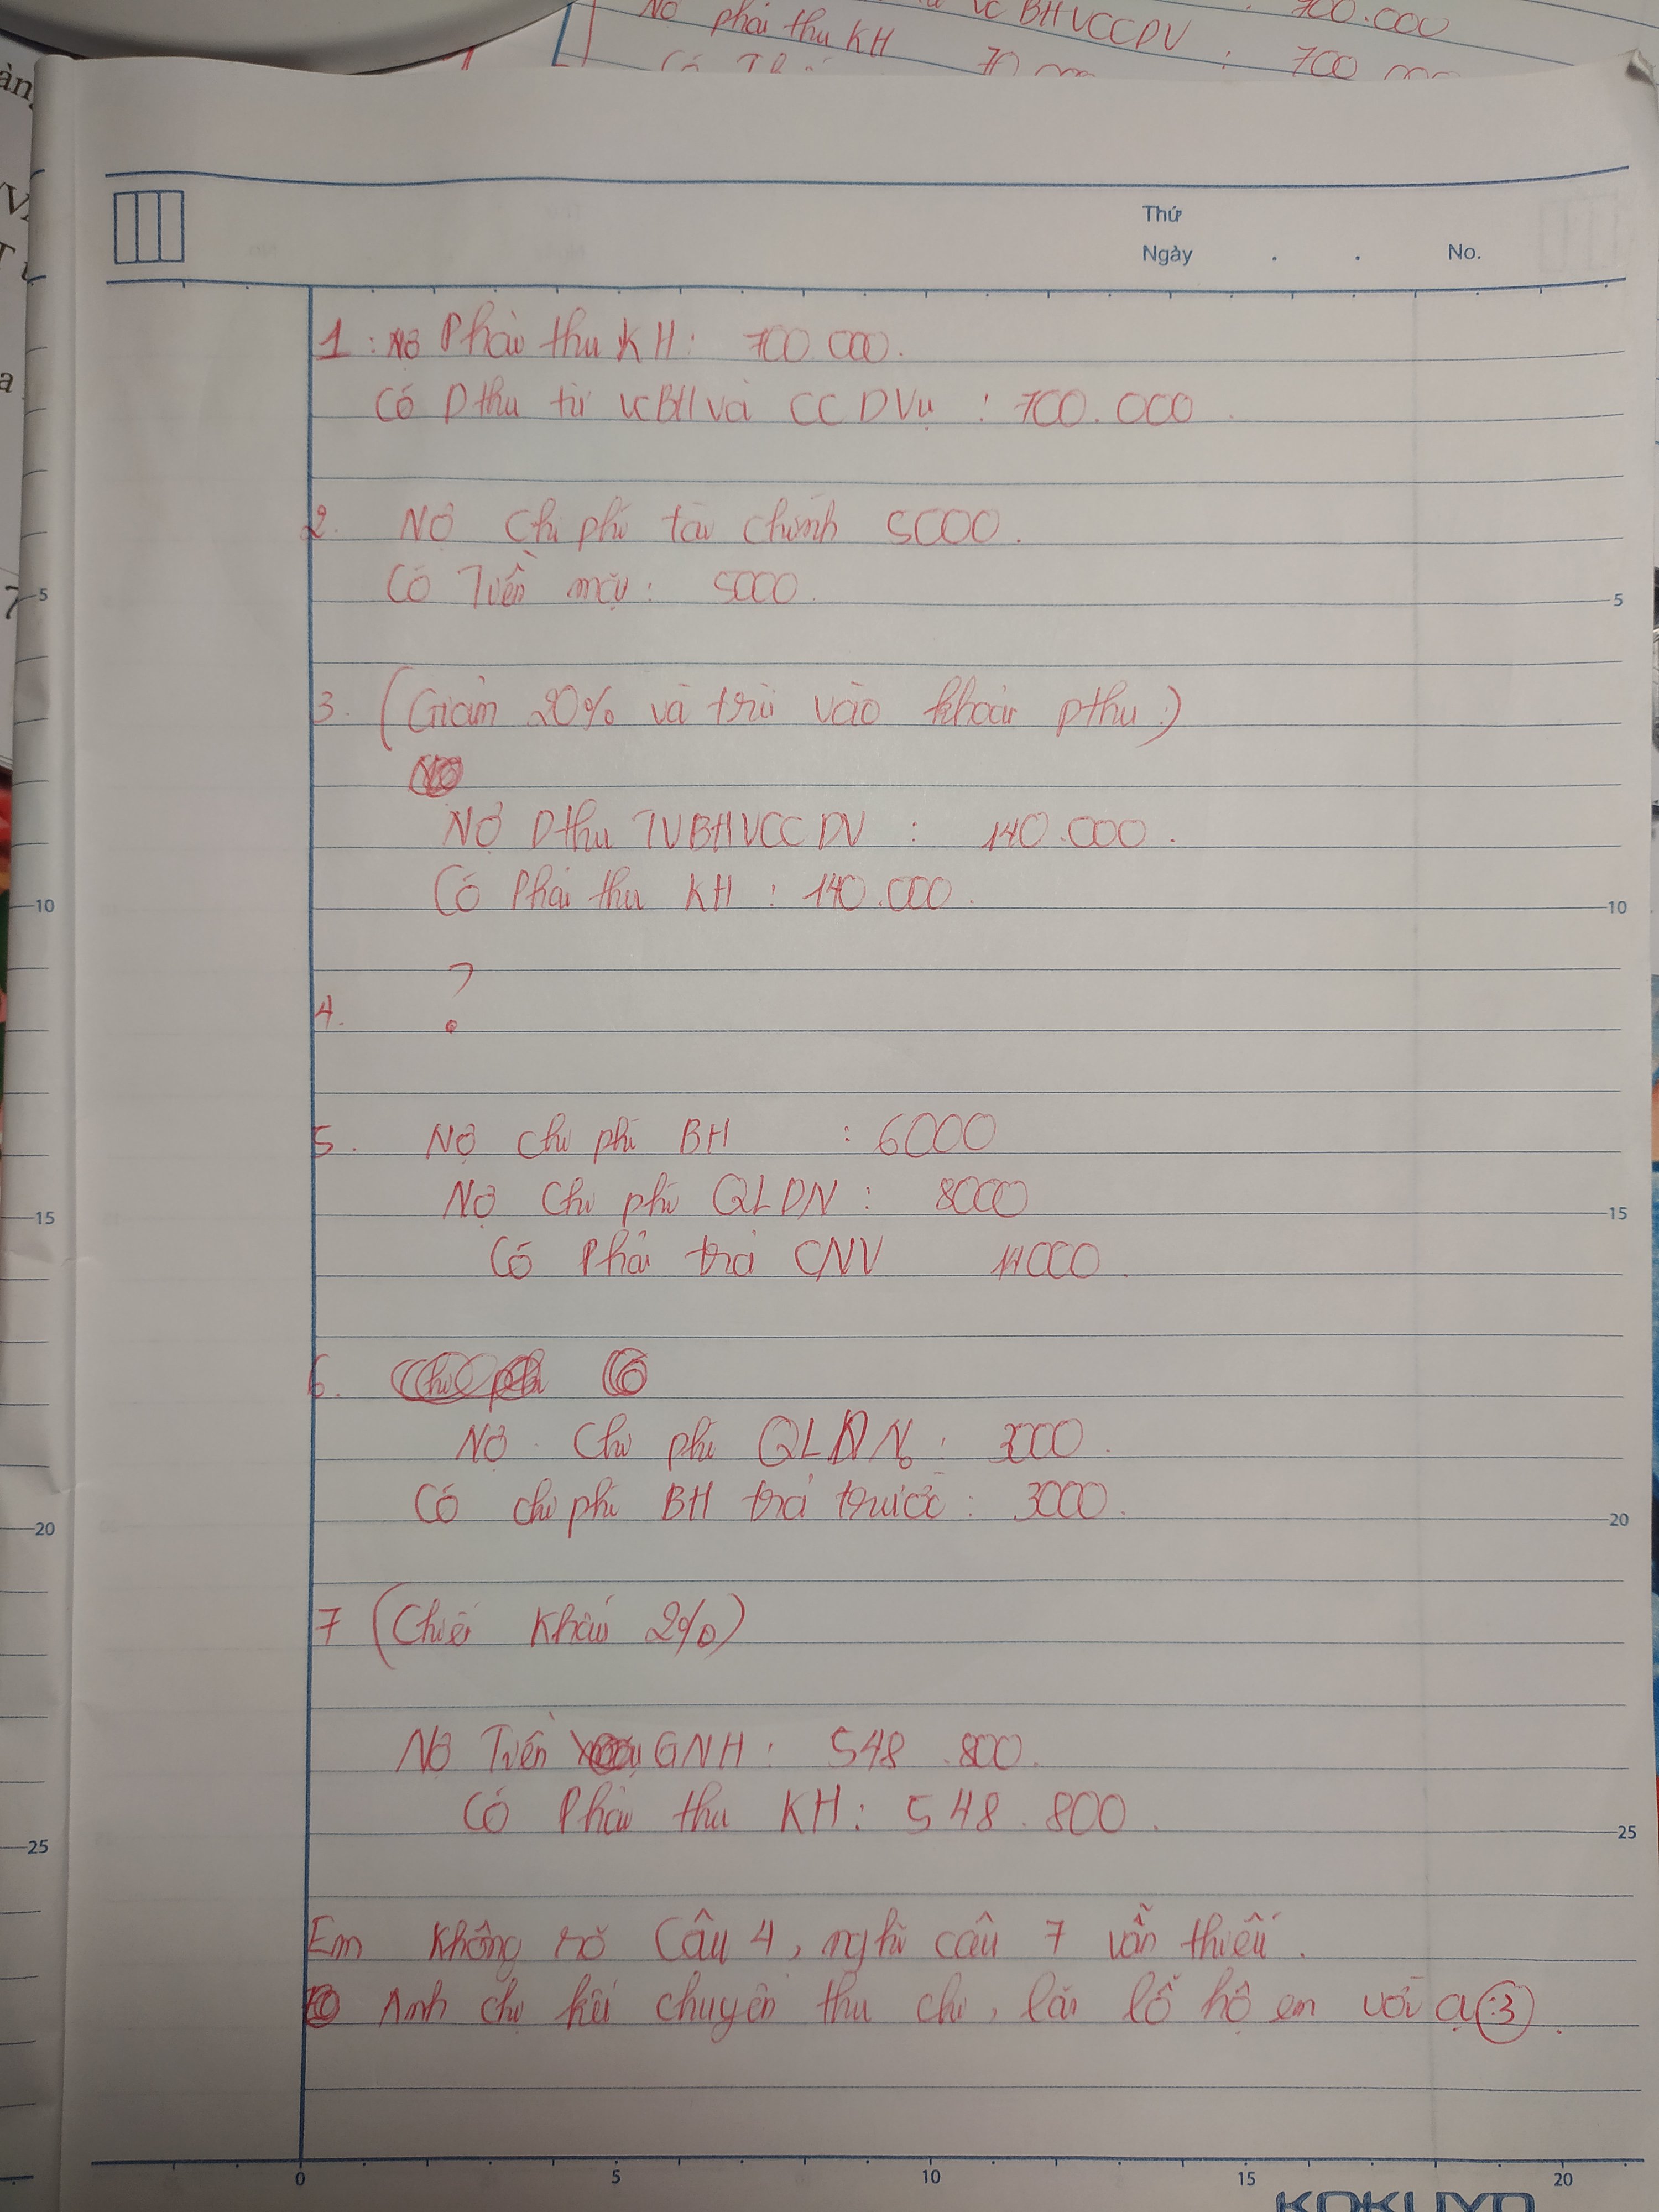 Nợ phải thu KH
vc BHVCCDV : 700.000
700
Thứ
Ngày . . No.
1: Nợ Phải thu KH: 700.000.
Có Dthu từ vcBH và CCDVụ : 700.000.
2. Nợ Chi phí tài chính 5000.
Có Tiền mặt: 5000.
3. (Giảm 20% và trừ vào khoản pthu)
Nợ Dthu TVBHVCCDV : 140.000.
Có Phải thu KH : 140.000.
4. ?
5. Nợ chi phí BH : 6000
Nợ Chi phí QLDN : 8000
Có Phải trả CNV 14000.
6.
Nợ Chi phí QLDN : 3000.
Có chi phí BH trả trước : 3000.
7 (Chiết Khấu 2%)
Nợ Tiền GNH : 548.800.
Có Phải thu KH : 548.800.
Em không rõ Câu 4, nghĩ câu 7 vẫn thiếu.
Anh chị kết chuyển thu chi, lãi lỗ hộ em với ạ :3.
5
10
15
20
25
5
10
15
20
25
0 5 10 15 20
KOKUYO